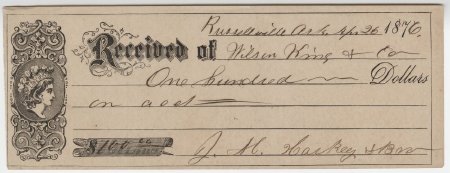 Russellville Ark. Apr. 26 1876.
Received of Wilson King & Co
One hundred Dollars
on acct
$100.00
J. M. Harkey & Bro